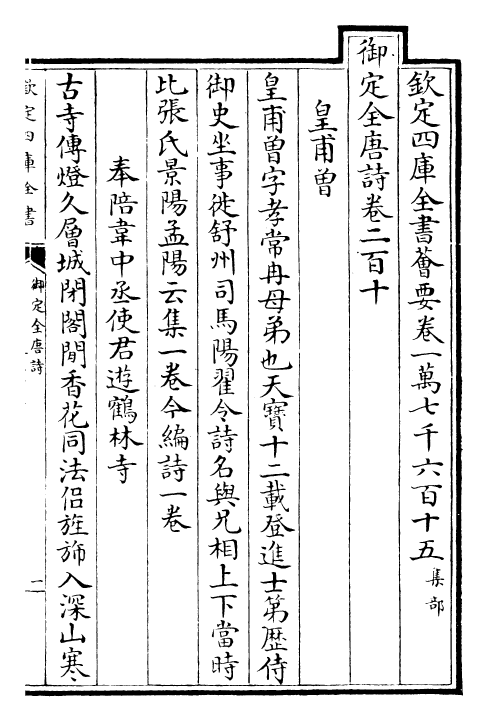 欽定四庫全書薈要卷一萬七千六百十五 集部
御定全唐詩卷二百十
皇甫曾
皇甫曾字孝常冉母弟也天寶十二載登進士第歷侍
御史坐事徙舒州司馬陽翟令詩名與兄相上下當時
比張氏景陽孟陽云集一卷今編詩一卷
奉陪韋中丞使君遊鶴林寺
古寺傳燈久層城閉閣閒香花同法侶旌旆入深山寒
欽定四庫全書
御定全唐詩
二